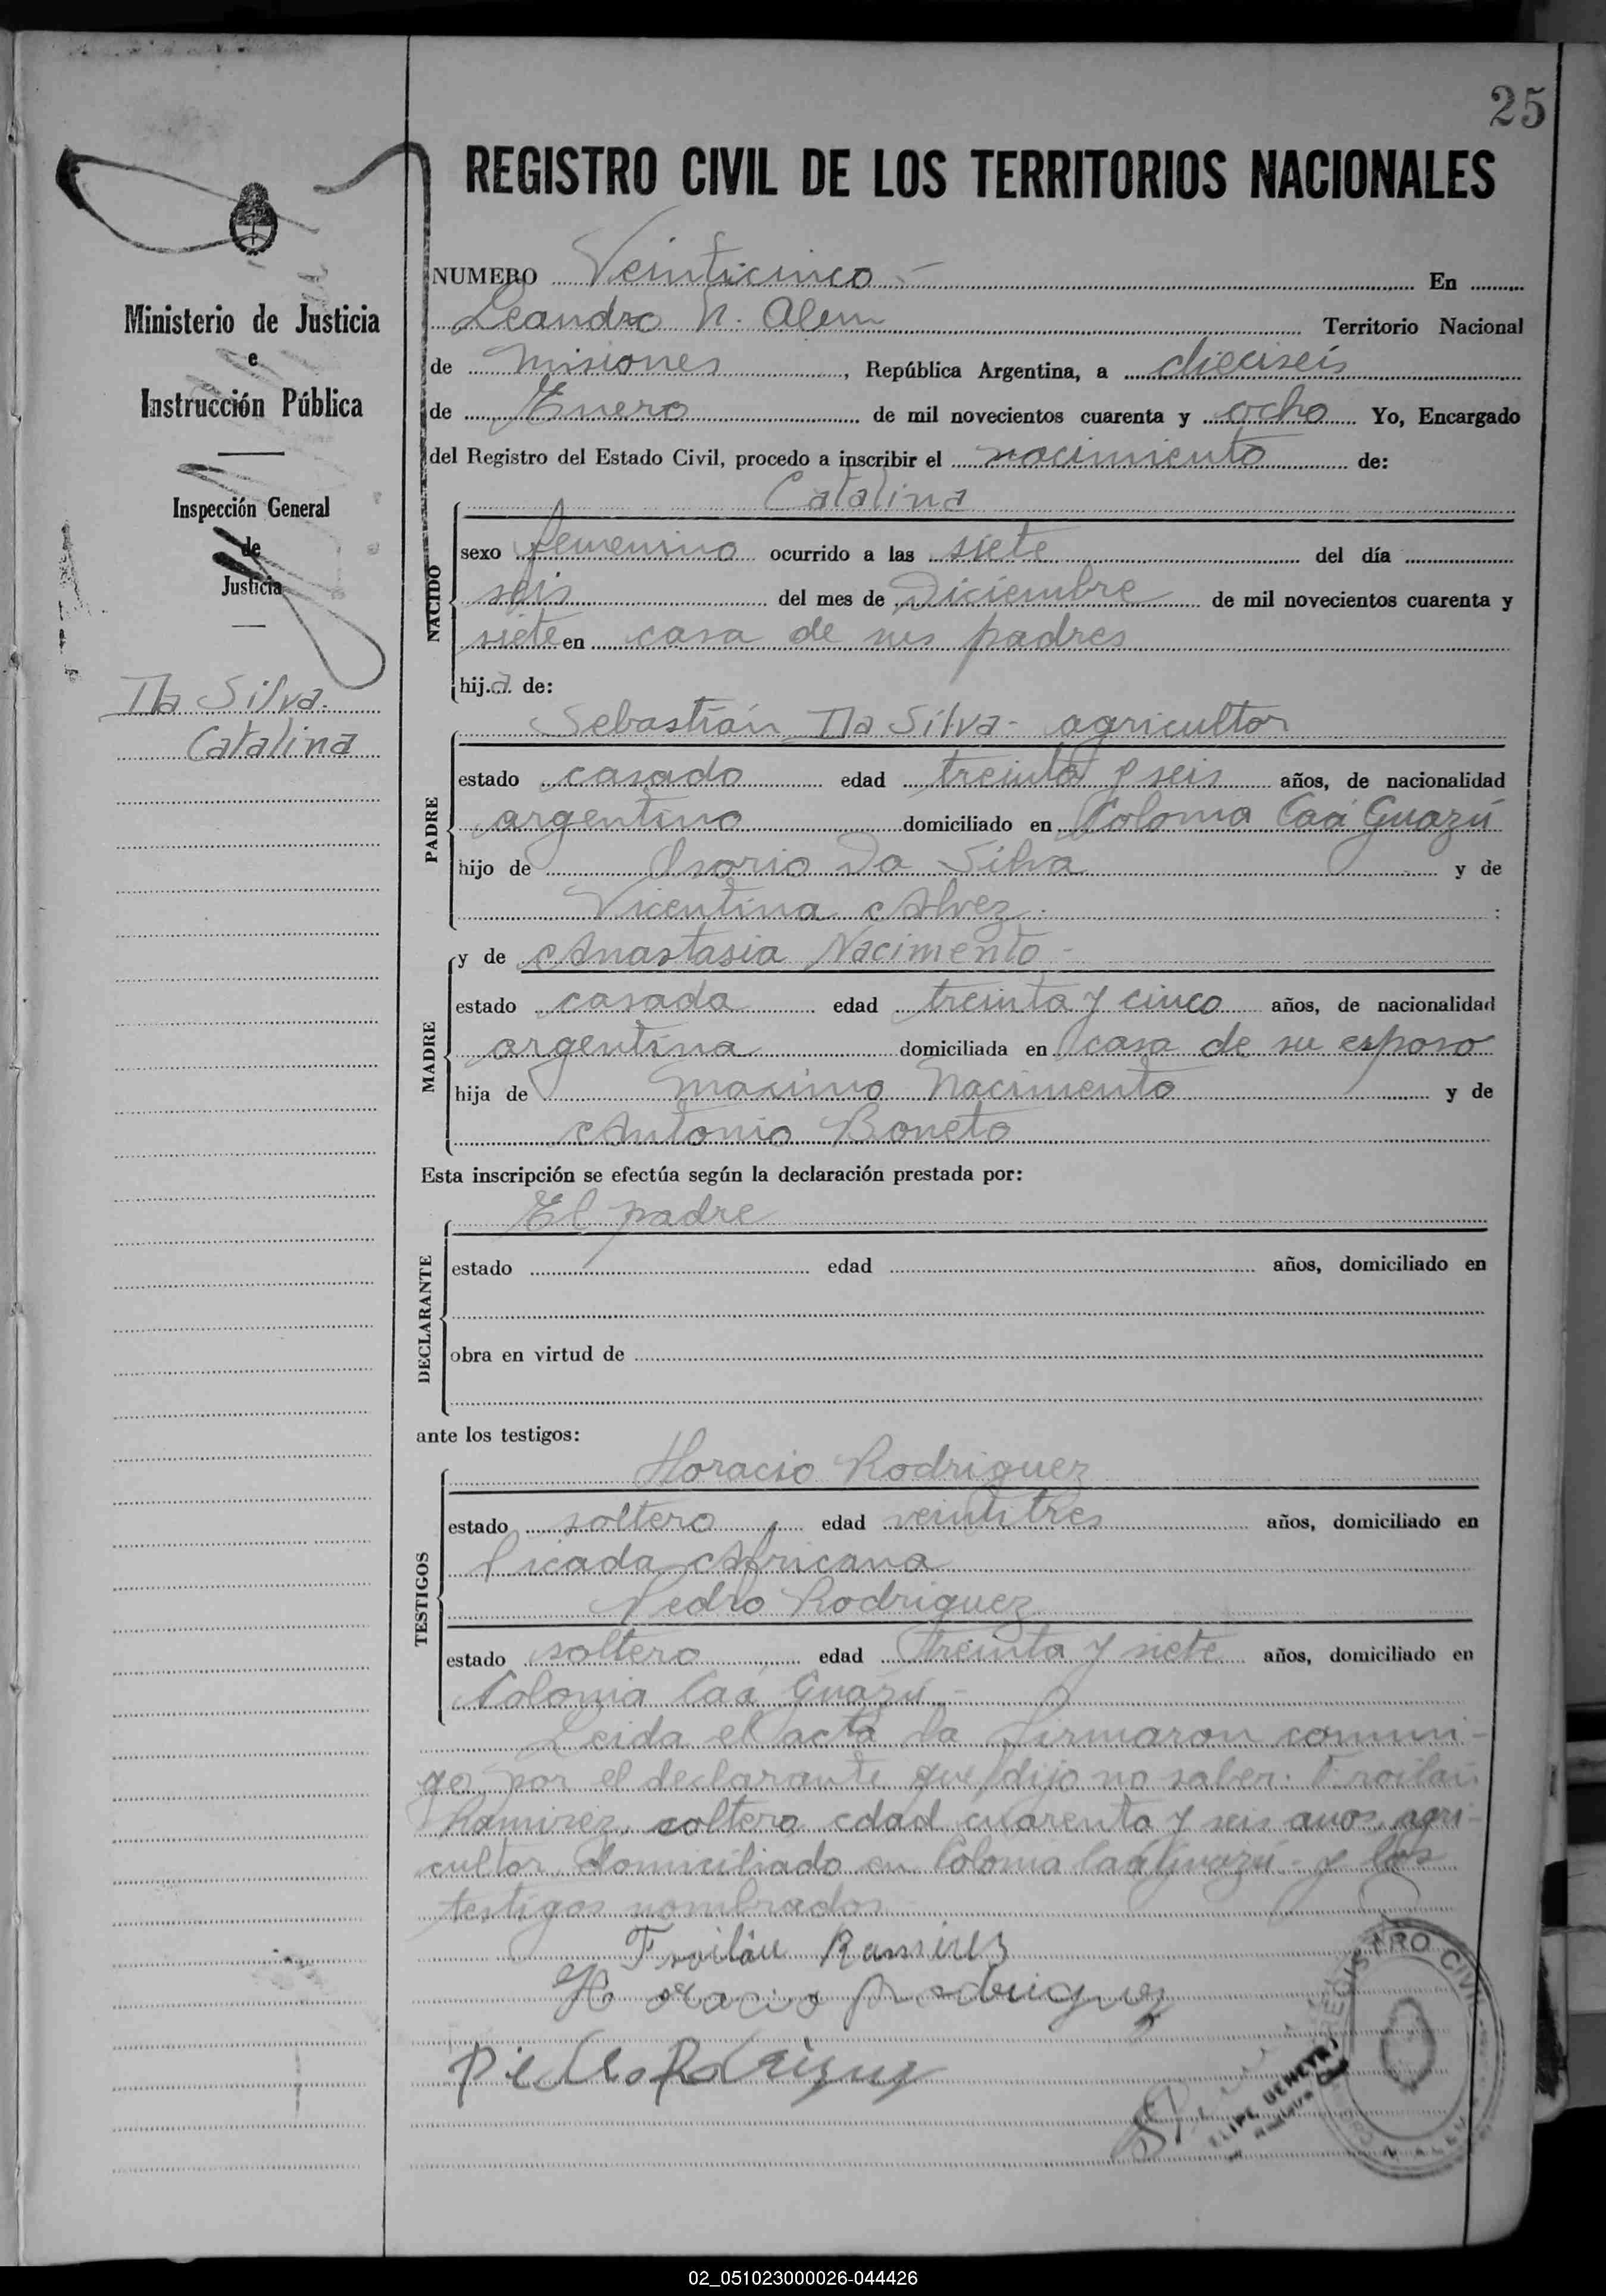 25
REGISTRO CIVIL DE LOS TERRITORIOS NACIONALES
Ministerio de Justicia
e
Instrucción Pública
Inspección General
de
Justicia
Da Silva.
Catalina
NUMERO Veinticinco - En
Leandro N. Alem Territorio Nacional
de Misiones, República Argentina, a dieciseis
de Enero de mil novecientos cuarenta y ocho Yo, Encargado
del Registro del Estado Civil, procedo a inscribir el nacimiento de:
NACIDO
Catalina
sexo femenino ocurrido a las siete del día
seis del mes de Diciembre de mil novecientos cuarenta y
siete en casa de sus padres
hija de:
PADRE
Sebastián Da Silva - agricultor
estado casado edad treinta y seis años, de nacionalidad
argentino domiciliado en Colonia Caá Guazú
hijo de Osorio Da Silva y de
Vicentina Alvez. :
MADRE
y de Anastasia Nacimento -
estado casada edad treinta y cinco años, de nacionalidad
argentina domiciliada en casa de su esposo
hija de Maximo Nacimento y de
Antonia Boneto
Esta inscripción se efectúa según la declaración prestada por:
DECLARANTE
El padre
estado edad años, domiciliado en
obra en virtud de
ante los testigos:
TESTIGOS
Horacio Rodriguez
estado soltero edad veintitres años, domiciliado en
Picada Africana
Pedro Rodriguez
estado soltero edad treinta y siete años, domiciliado en
Colonia Caá Guazú -
Leida el acta la firmaron conmi-
go por el declarante que dijo no saber. Froilán
Ramirez, soltero edad cuarenta y seis anos, agri-
cultor domiciliado en Colonia Caá Guazú - y los
testigos nombrados
Froilán Ramirez
Horacio Rodriguez
REGISTRO CIVIL
N. ALEM
02_051023000026-044426